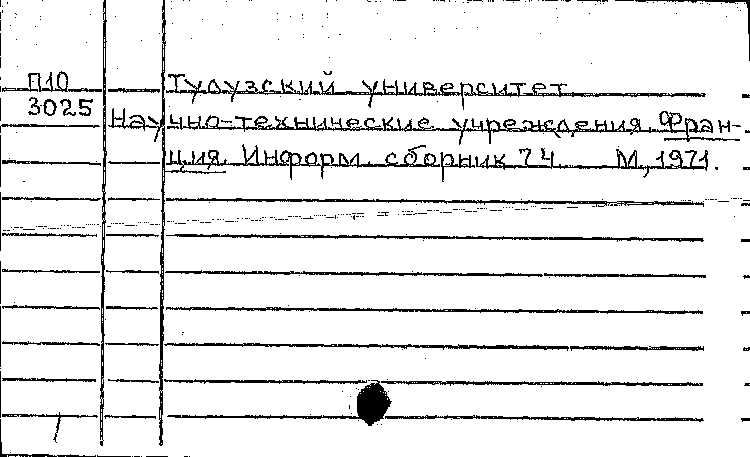 П10
3025
Тулузский университет
Научно-технические учреждения. Фран-
ция. Информ. сборник 74. М., 1971.